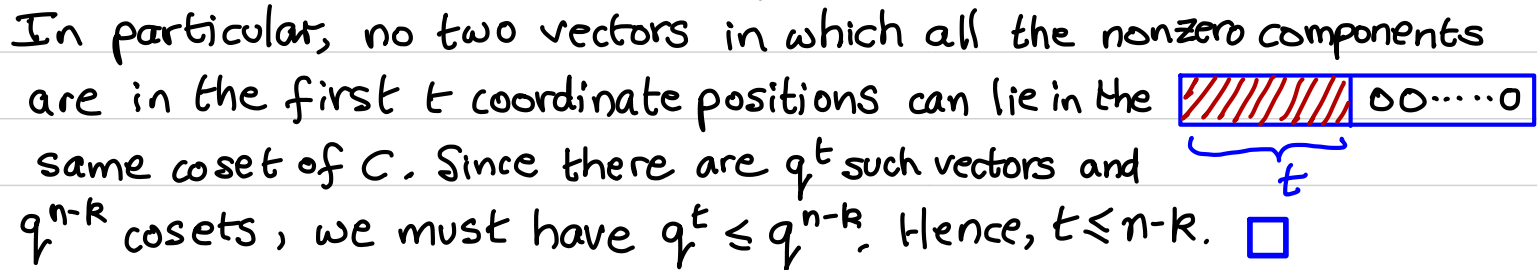 In particular, no two vectors in which all the nonzero components
are in the first t coordinate positions can lie in the 00·····0
same coset of C. Since there are q^t such vectors and t
q^{n-k} cosets, we must have q^t ≤ q^{n-k}. Hence, t ≤ n-k. □